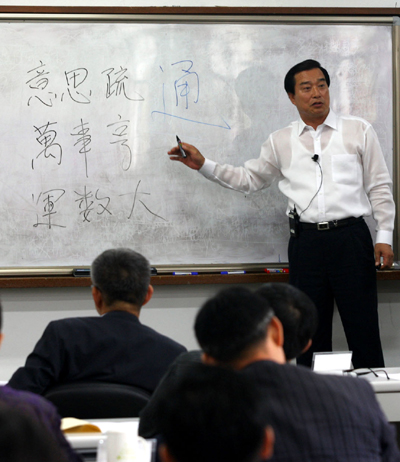 意思疏通
萬事亨
運數大